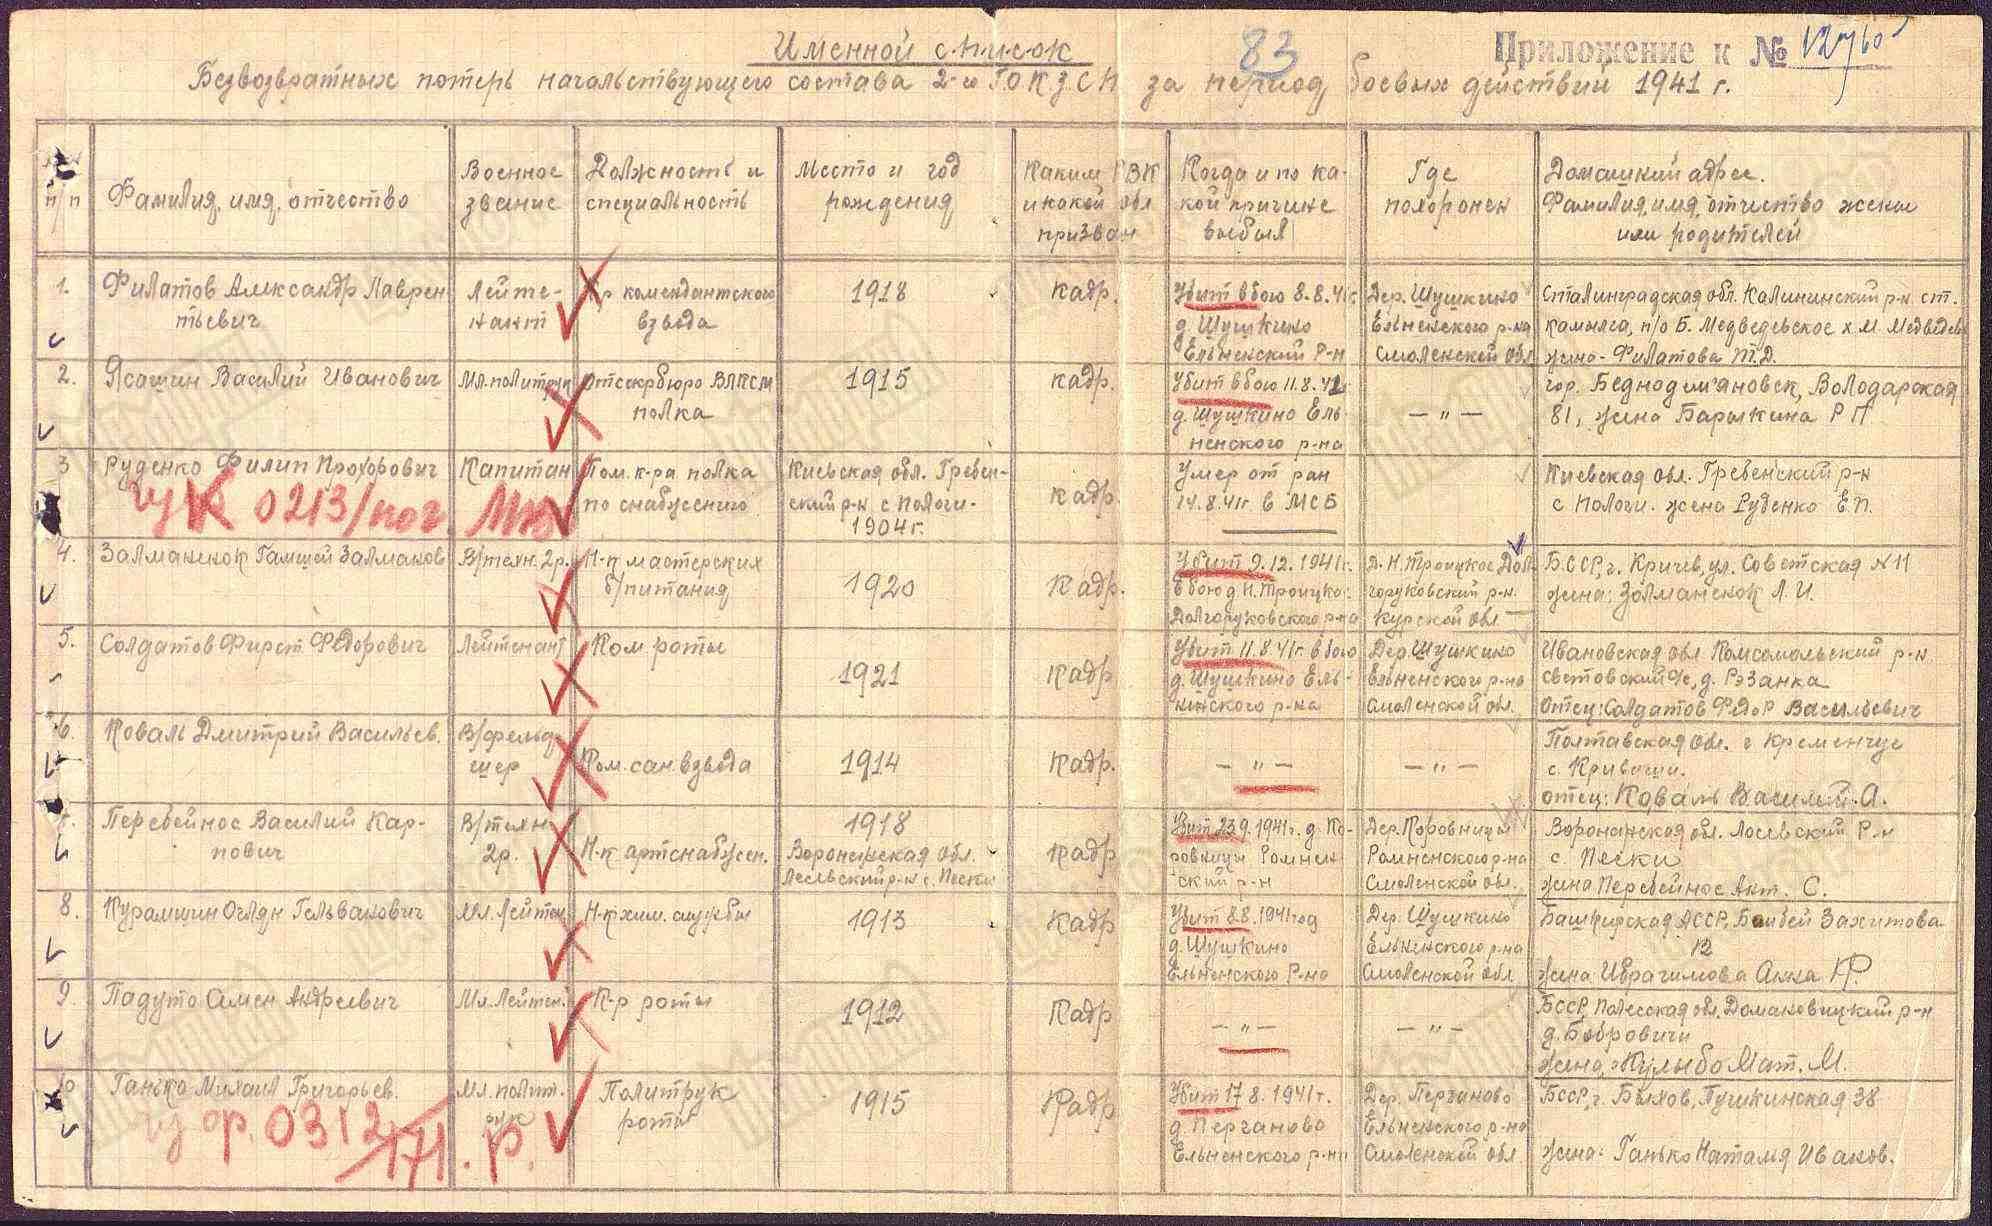 Именной список
83
Приложение к №
Безвозвратных потерь начальствующего состава 2-го ГОКЗСП за период боевых действий 1941 г.
п/п
Фамилия, имя, отчество
Военное
звание
Должность и
специальность
Место и год
рождения
Каким РВК
и какой обл
призван
Когда и по ка-
кой причине
выбыл
Где
похоронен
Домашний адрес.
Фамилия, имя, отчество жены
или родителей
1.
Филатов Александр Лаврен
тьевич
Лейте-
нант
к-р комендантского
взвода
1918
кадр.
Убит в бою 8.8.41г.
д. Шушкино
Ельненский р-н
Дер. Шушкино
Ельненского р-на
Смоленской обл
Сталинградская обл. Калининский р-н. ст.
п/о Б. Медведевское х. М. Медведев
жена - Филатова Т.Д.
2.
Ясашин Василий Иванович
Мл. политрук
Отсекрбюро ВЛКСМ
полка
1915
кадр.
Убит в бою 11.8.41
д. Шушкино Ель-
ненского р-на
— „ —
гор. Беднодемьяновск, Володарская
81, жена Барыкина Р П
3
Руденко Филип Прохорович
0213/
Капитан
Пом. к-ра полка
по снабжению
Киевская обл. Гребен-
ский р-н с Пологи.
1904г.
кадр.
Умер от ран
14.8.41г. в МСБ
Киевская обл. Гребенский р-н
с Пологи. жена Руденко Е.П.
4.
Залманзон
В/техн. 2р.
Н-к мастерских
б/питания
1920
Кадр.
Убит 9.12.1941г.
в бою д Н. Троицко:
Долгоруковского р-на
д. Н. Троицкое Дол
горуковский р-н.
Курской обл
БССР, г. Кричев, ул. Советская N 11
жена: Л. И.
5.
Солдатов Фирст Федорович
Лейтенант
Ком роты
1921
Кадр
Убит 11.8.41г в бою
д. Шушкино Ель-
нинского р-на
Дер. Шушкино
Ельненского р-на
Смоленской обл.
Ивановская обл Комсомольский р-н
Световский с/с, д. Рязанка
Отец: Солдатов Федор Васильевич
6.
Коваль Дмитрий Васильев.
В/фельд-
шер
Ком. сан. взвода
1914
Кадр.
— „ —
— „ —
Полтавская обл. г Кременчуг
с. Криваши.
отец: Коваль Василий. А.
7.
Перебейнос Василий Кар-
пович
В/техн
2р.
Н-к артснабжен.
1918
Воронежская обл.
Лосевский р-н с. Пески
Кадр
Убит 23.9.1941г. д. Ко-
ровинцы Ромнен
ский р-н
Дер. Коровинцы
Ромненского р-на
Смоленской обл.
Воронежская обл. Лосевский р-н
с. Пески
жена Перебейнос Ант. С.
8.
Курамшин Оглян Гельванович
Мл. Лейтен
Н-к хим. службы
1913
Кадр
Убит 8.8.1941год
д. Шушкино
Ельненского р-на
Дер. Шушкино
Ельненского р-на
Смоленской обл
Башкирская АССР, Баибей Захитова
12
жена Ибрагимова Анна КР.
9.
Падуто Семен Андреевич
Мл. Лейтен.
К-р роты
1912
Кадр
— „ —
— „ —
БССР, Полесская обл, Домановицкий р-н
д. Бобровичи
жена Кулыбо Мат. М.
10
Ганько Михаил Григорьев.
0312
Мл. полит.
рук
Политрук
роты
1915
Кадр
Убит 17.8.1941г.
д. Перганово
Ельненского р-на
Дер. Перганово
Ельненского р-на
Смоленской обл.
БССР, г. Быхов, Пушкинская 38
жена: Ганько Наталя Иванов.